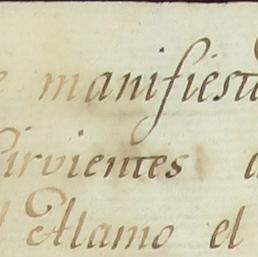 e manifiesta
Sirvientes d
l Alamo el